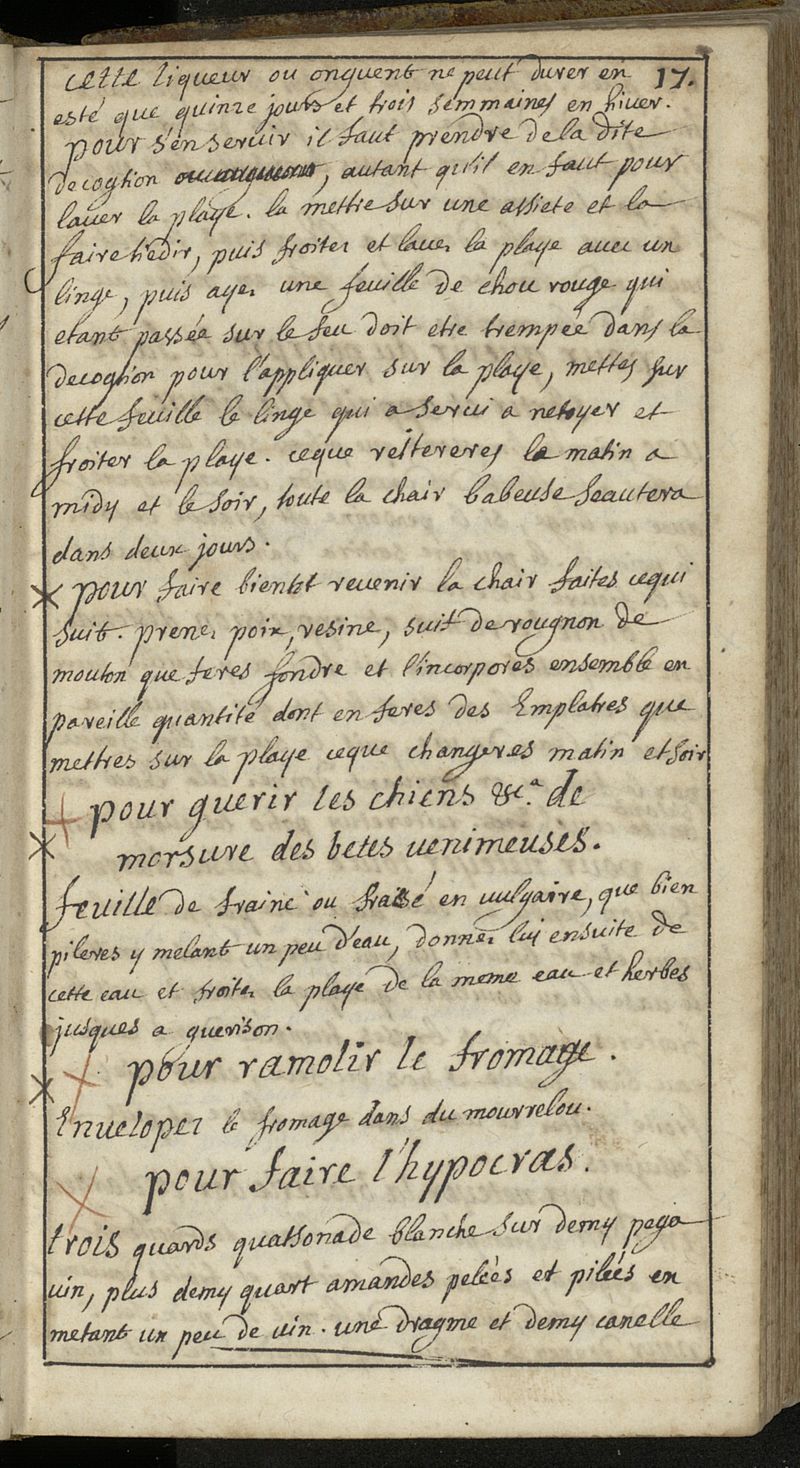 cette liqueur ou onguent ne peut durer en 17.
esté que quinze jours et trois semmaines en hiver.
pour s'en seruir il faut prendre de la dite
decogtion, autant qu'il en faut pour
lauer la playe. la mettre sur une assiete et la
faire tiedir, puis froiter et lauer la playe auec un
linge, puis ayez une feuille de chou rouge qui
etant passée sur le feu doit etre trempée dans la
decogtion pour l'appliquer sur la playe, mettes sur
cette feuille le linge qui a serui a netoyer et
froiter la playe. ceque reitereres le matin a
midy et le soir, toute la chair babeuse seautera
dans deux jours.
× pour faire bientot reuenir la chair faites cequi
suit. prenez poix, resine, suit de rougnon de
mouton que feres fondre et l'incorpores ensemble en
pareille quantité dont en feres des Emplatres que
mettres sur la playe ceque changeres matin et soir
pour guerir les chiens &c.ª de
morsure des betes uenimeuses.
feuille de fraine ou en uulgaire, que bien
pileres y melant un peu d'eau, donnez luy ensuite de
cette eau et froitez la playe de la meme eau et herbes
jusques a guerison.
pour ramolir le fromage.
Enuelopez le fromage dans du mourrelou.
pour faire l'hypocras.
trois quards quassonade blanche sur demy pega
uin, plus demy quart amandes pelées et pilées en
metant un peu de uin. une dragme et demy canelle